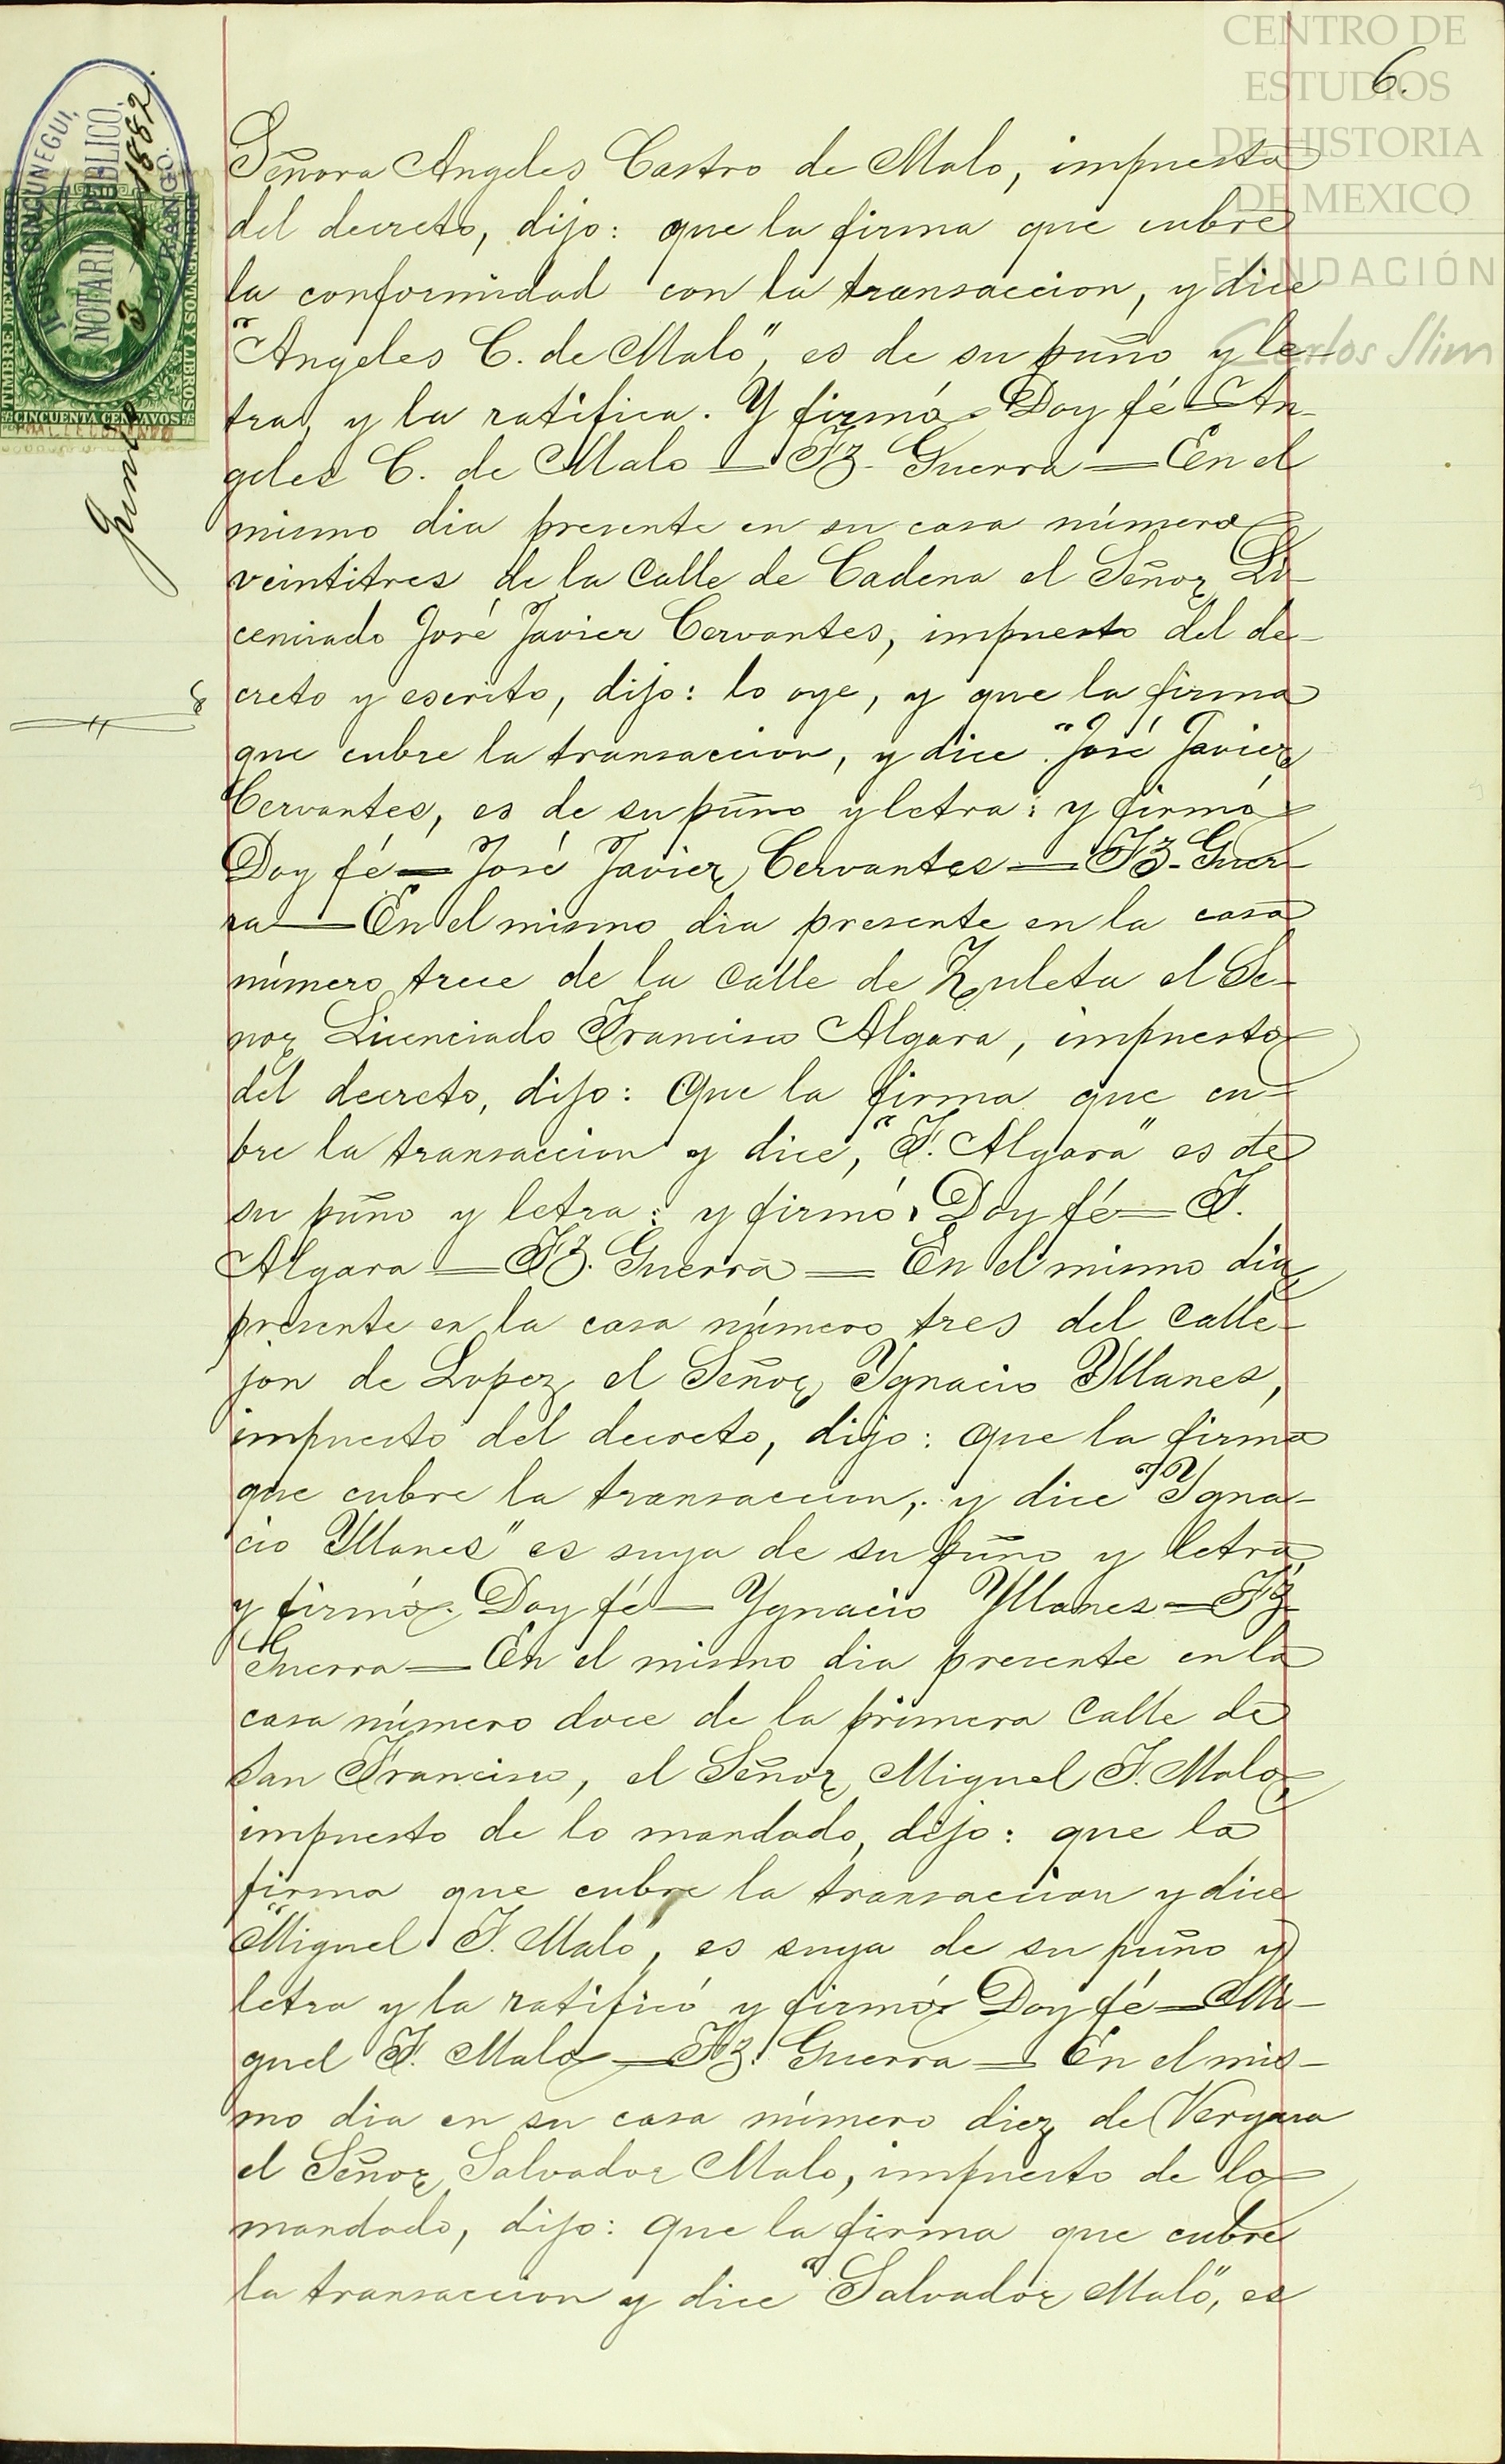 CENTRO DE
ESTUDIOS
DE HISTORIA
DE MEXICO
FUNDACIÓN
Carlos Slim
6.
JESUS CINCUNEGUI,
NOTARIO PUBLICO,
DURANGO.
Junio 3 de 1882.
TIMBRE MEXICANO
DOCUMENTOS Y LIBROS
CINCUENTA CENTAVOS
Señora Angeles Castro de Malo, impuesta
del decreto, dijo: que la firma que cubre
la conformidad con la transaccion, y dice
"Angeles C. de Malo", es de su puño y le-
tra, y la ratifica. Y firmó. Doy fé = An-
geles C. de Malo = Fz. Guerra = En el
mismo dia presente en su casa número
veintitres de la Calle de Cadena el Señor Li-
cenciado José Javier Cervantes, impuesto del de-
creto y escrito, dijo: lo oye, y que la firma
que cubre la transaccion, y dice "José Javier
Cervantes, es de su puño y letra: y firmó
Doy fé = José Javier Cervantes = Fz. Guer-
ra = En el mismo dia presente en la casa
número trece de la calle de Zuleta el Se-
ñor Licenciado Francisco Algara, impuesto
del decreto, dijo: Que la firma que cu-
bre la transaccion y dice, "F. Algara" es de
su puño y letra: y firmó. Doy fé = F.
Algara = Fz. Guerra = En el mismo dia
presente en la casa número tres del calle-
jon de Lopez el Señor Ygnacio Yllanes,
impuesto del decreto, dijo: que la firma
que cubre la transaccion, y dice "Ygna-
cio Yllanes" es suya de su puño y letra,
y firmó. Doy fé = Ygnacio Yllanes = Fz
Guerra = En el mismo dia presente en la
casa número doce de la primera Calle de
San Francisco, el Señor Miguel F. Malo,
impuesto de lo mandado, dijo: que la
firma que cubre la transaccion y dice
"Miguel F. Malo", es suya de su puño y
letra y la ratificó y firmó. Doy fé = Mi-
guel F. Malo = Fz. Guerra = En el mis-
mo dia en su casa número diez de Vergara
el Señor Salvador Malo, impuesto de lo
mandado, dijo: que la firma que cubre
la transaccion y dice "Salvador Malo", es